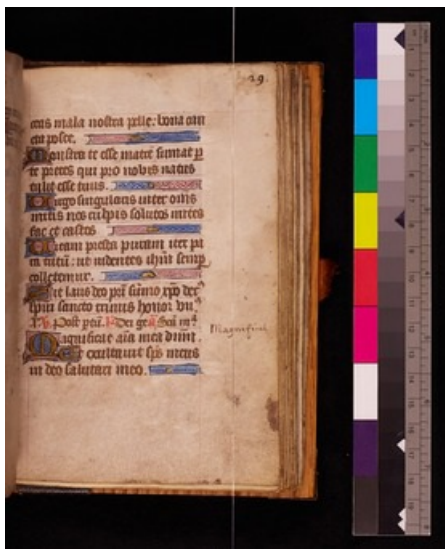 29.
cecis mala nostra pelle: bona cun
cta posce.
Monstra te esse matrē sumat p
te preces qui pro nobis natus
tulit esse tuus.
Virgo singularis inter oīns
mitis nos culpis solutos mites
fac et castos.
Vitam presta puram iter pa
ra tutū: ut videntes ihm semp
colletemur.
Sit laus deo pri sūmo xpo dec
spui sancto trinus honor vn
Post Dei ge
Magnificat
Magnificat aīa mea dnm̄.
Et exultavit sps meus
in deo salutari meo.